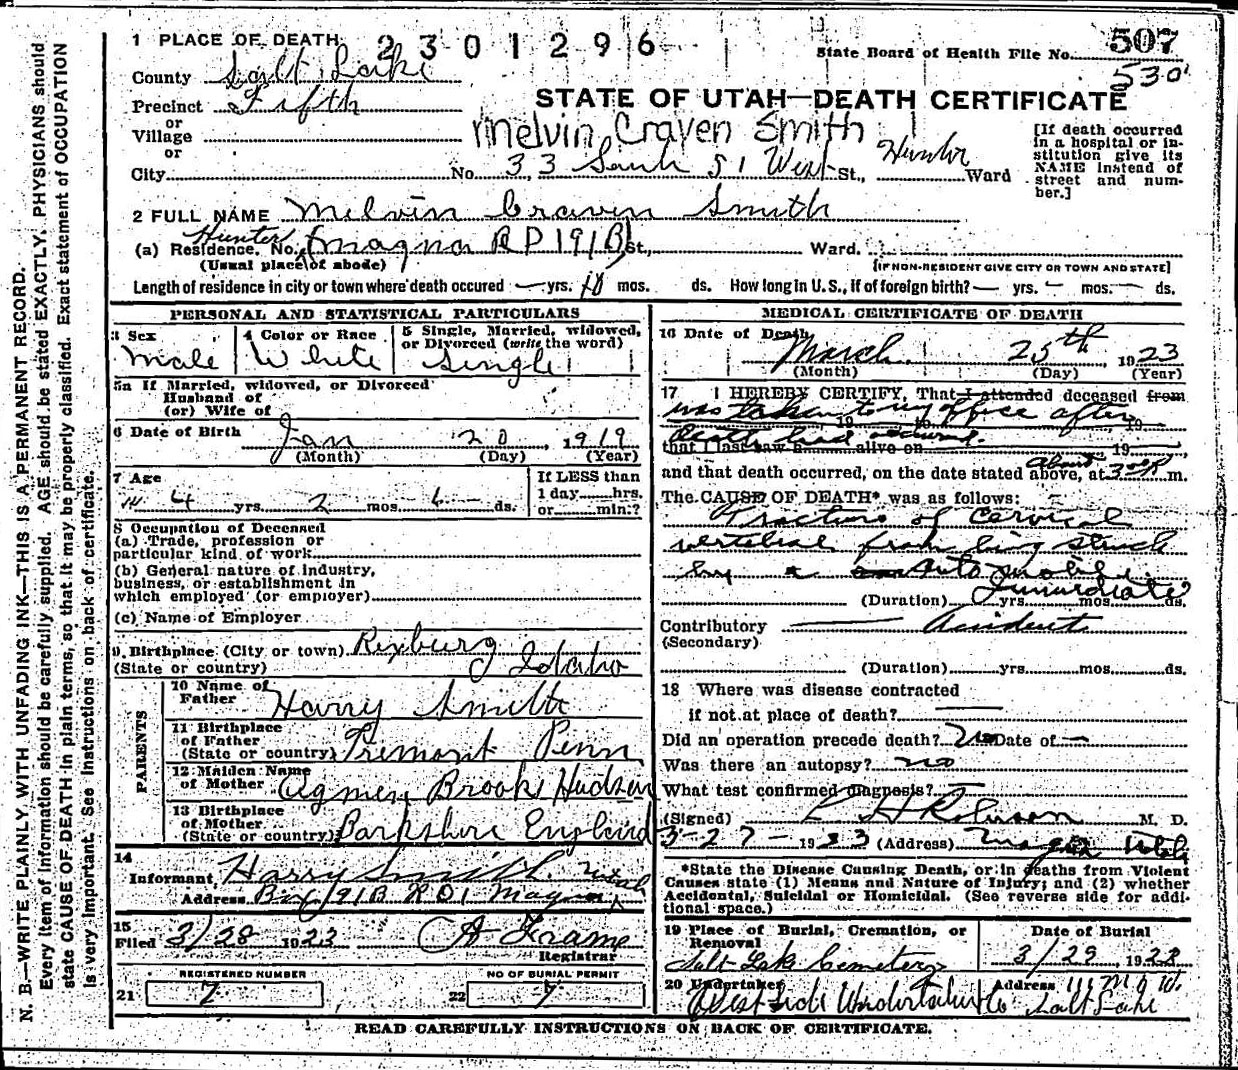 1 PLACE OF DEATH 2301296
State Board of Health File No. 507
530
County Salt Lake
Precinct Fifth
or
Village
or
City No. 33 South 51 West St., Hunter Ward
STATE OF UTAH—DEATH CERTIFICATE
Melvin Craven Smith
[If death occurred in a hospital or institution give its NAME instead of street and number.]
2 FULL NAME Melvin Craven Smith
Hunter
(a) Residence. No. Magna R D 191B St., Ward.
(Usual place of abode) [IF NON-RESIDENT GIVE CITY OR TOWN AND STATE]
Length of residence in city or town where death occured — yrs. 10 mos. ds. How long in U.S., if of foreign birth? — yrs. — mos. — ds.
PERSONAL AND STATISTICAL PARTICULARS
3 Sex 4 Color or Race 5 Single, Married, widowed, or Divorced (write the word)
Male White Single
5a If Married, widowed, or Divorced
Husband of
(or) Wife of
6 Date of Birth Jan 20, 1919
(Month) (Day) (Year)
7 Age If LESS than
1 day hrs.
4 yrs. 2 mos. ds. or min.?
8 Occupation of Deceased
(a) Trade, profession or
particular kind of work
(b) General nature of industry,
business, or establishment in
which employed (or employer)
(c) Name of Employer
9 Birthplace (City or town) Rexburg
(State or country) Idaho
PARENTS
10 Name of Father Harry Smith
11 Birthplace of Father
(State or country) Tremont Penn
12 Maiden Name of Mother Brooks Hudson
13 Birthplace of Mother
(State or country) Barkshire England
14
Informant Harry Smith Utah
Address Box 191B R D 1 Magna
15
Filed 3/28 1923 Frame
Registrar
REGISTERED NUMBER NO OF BURIAL PERMIT
21 7 22 7
MEDICAL CERTIFICATE OF DEATH
16 Date of Death March 25th 1923
(Month) (Day) (Year)
17 I HEREBY CERTIFY, That I attended deceased from
was taken to my office after
19 19
death had occurred.
that I last saw h alive on 19
and that death occurred, on the date stated above, at about 3 m.
The CAUSE OF DEATH* was as follows:
Fracture of Cervical
vertebrae from being struck
by automobile.
Immediate
(Duration) yrs. mos. ds.
Contributory Accident
(Secondary)
(Duration) yrs. mos. ds.
18 Where was disease contracted
if not at place of death? —
Did an operation precede death? No Date of —
Was there an autopsy? no
What test confirmed diagnosis?
(Signed) Robinson M. D.
3-27-1923 (Address) Magna Utah
*State the Disease Causing Death, or in deaths from Violent
Causes state (1) Means and Nature of Injury; and (2) whether
Accidental, Suicidal or Homicidal. (See reverse side for additional space.)
19 Place of Burial, Cremation, or Removal Date of Burial
Salt Lake Cemetery 3/29, 1923
20 Undertaker Address
West Side Undertaking Co Salt Lake
READ CAREFULLY INSTRUCTIONS ON BACK OF CERTIFICATE.
N. B.—WRITE PLAINLY WITH UNFADING INK—THIS IS A PERMANENT RECORD.
Every item of information should be carefully supplied. AGE should be stated EXACTLY. PHYSICIANS should
state CAUSE OF DEATH in plain terms, so that it may be properly classified. Exact statement of OCCUPATION
is very important. See instructions on back of certificate.